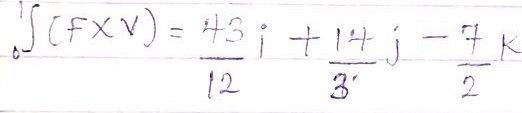 ₀¹∫(F×V) = 43/12 i + 14/3 j - 7/2 k